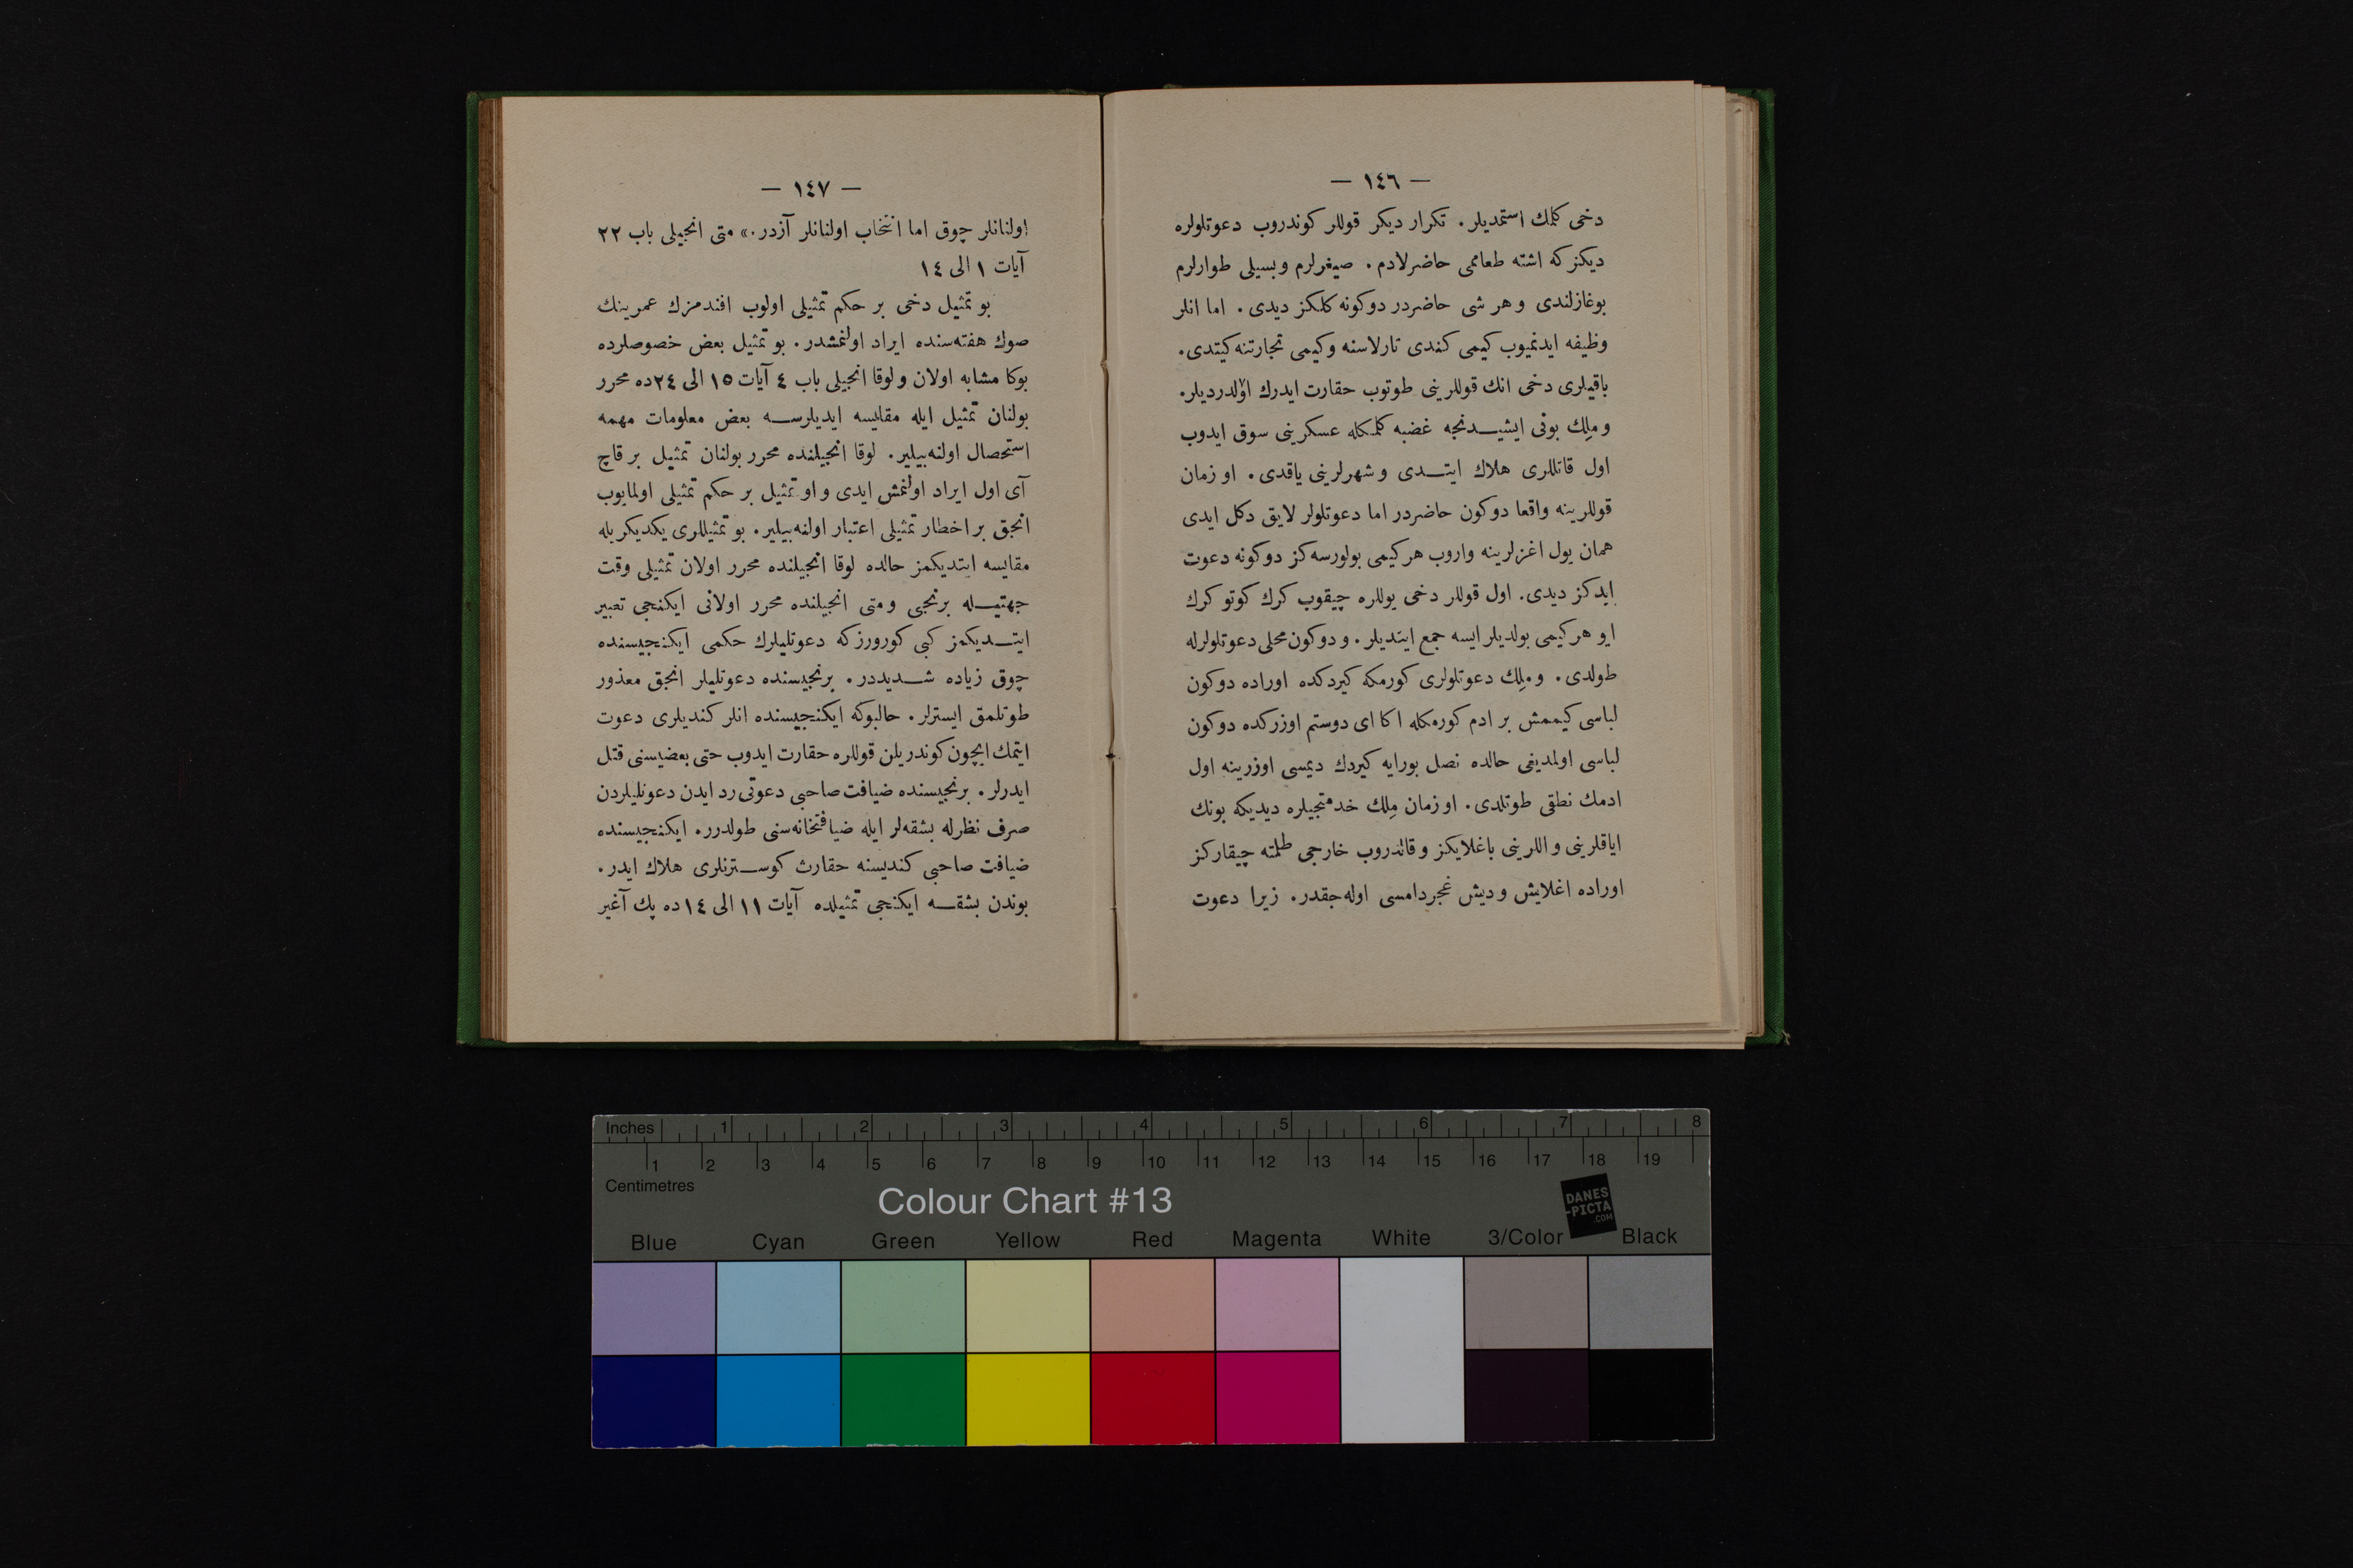 — ١٤٦ —
دخى كلمك استمديلر. تكرار ديكر قوللر كوندروب دعوتلولره
ديكز كه اشته طعاممى حاضرلادم. صيغرلرم و بسيلى طوارلرم
بوغازلندى و هر شى حاضردر دوكونه كلكز ديدى. اما انلر
وظيفه ايدنميوب كيمى كندى تارلاسنه و كيمى تجارتنه كيتدى.
باقيلرى دخى انك قوللرينى طوتوب حقارت ايدرك اولدرديلر.
و ملِك بونى ايشيدنجه غضبه كلمكله عسكرينى سوق ايدوب
اول قاتللرى هلاك ايتدى و شهرلرينى ياقدى. او زمان
قوللرينه واقعا دوكون حاضردر اما دعوتلولر لايق دكل ايدى
همان يول اغزلرينه واروب هر كيمى بولورسه كز دوكونه دعوت
ايدكز ديدى. اول قوللر دخى يوللره چيقوب كرك كوتو كرك
ايو هر كيمى بولديلر ايسه جمع ايتديلر. و دوكون محلى دعوتلولرله
طولدى. و ملِك دعوتلولرى كورمكه كيردكده اوراده دوكون
لباسى كيممش بر ادم كورمكله اكا اى دوستم اوزركده دوكون
لباسى اولمديغى حالده نصل بورايه كيردك ديمسى اوزرينه اول
ادمك نطقى طوتلدى. او زمان ملِك خدمتجيلره ديديكه بونك
اياقلرينى و اللرينى باغلايكز و قالدروب خارجى ظلمته چيقاركز
اوراده اغلايش و ديش غجردامسى اوله جقدر. زيرا دعوت
— ١٤٧ —
اولنانلر چوق اما انتخاب اولنانلر آزدر.» متى انجيلى باب ٢٢
آيات ١ الى ١٤
بو تمثيل دخى بر حكم تمثيلى اولوب افندمزك عمرينك
صوك هفته سنده ايراد اولنمشدر. بو تمثيل بعض خصوصلرده
بوكا مشابه اولان و لوقا انجيلى باب ٤ آيات ١٥ الى ٢٤ ده محرر
بولنان تمثيل ايله مقايسه ايديلرسه بعض معلومات مهمه
استحصال اولنه بيلير. لوقا انجيلنده محرر بولنان تمثيل بر قاچ
آى اول ايراد اولنمش ايدى و او تمثيل بر حكم تمثيلى اولمايوب
انجق بر اخطار تمثيلى اعتبار اولنه بيلير. بو تمثيللرى يكديكريله
مقايسه ايتديكمز حالده لوقا انجيلنده محرر اولان تمثيلى وقت
جهتيله برنجى و متى انجيلنده محرر اولانى ايكنجى تعبير
ايتديكمز كبى كورورز كه دعوتليلرك حكمى ايكنجيسنده
چوق زياده شديددر. برنجيسنده دعوتليلر انجق معذور
طوتلمق ايسترلر. حالبوكه ايكنجيسنده انلر كنديلرى دعوت
ايتمك ايچون كوندريلن قوللره حقارت ايدوب حتى بعضيسنى قتل
ايدرلر. برنجيسنده ضيافت صاحبى دعوتى رد ايدن دعوتليلردن
صرف نظرله بشقه لر ايله ضيافتخانه سنى طولدرر. ايكنجيسنده
ضيافت صاحبى كنديسنه حقارت كوسترنلرى هلاك ايدر.
بوندن بشقه ايكنجى تمثيلده آيات ١١ الى ١٤ ده پك آغير
Inches 1 2 3 4 5 6 7 8
1 2 3 4 5 6 7 8 9 10 11 12 13 14 15 16 17 18 19
Centimetres
Colour Chart #13
DANES
-PICTA
.COM
Blue Cyan Green Yellow Red Magenta White 3/Color Black